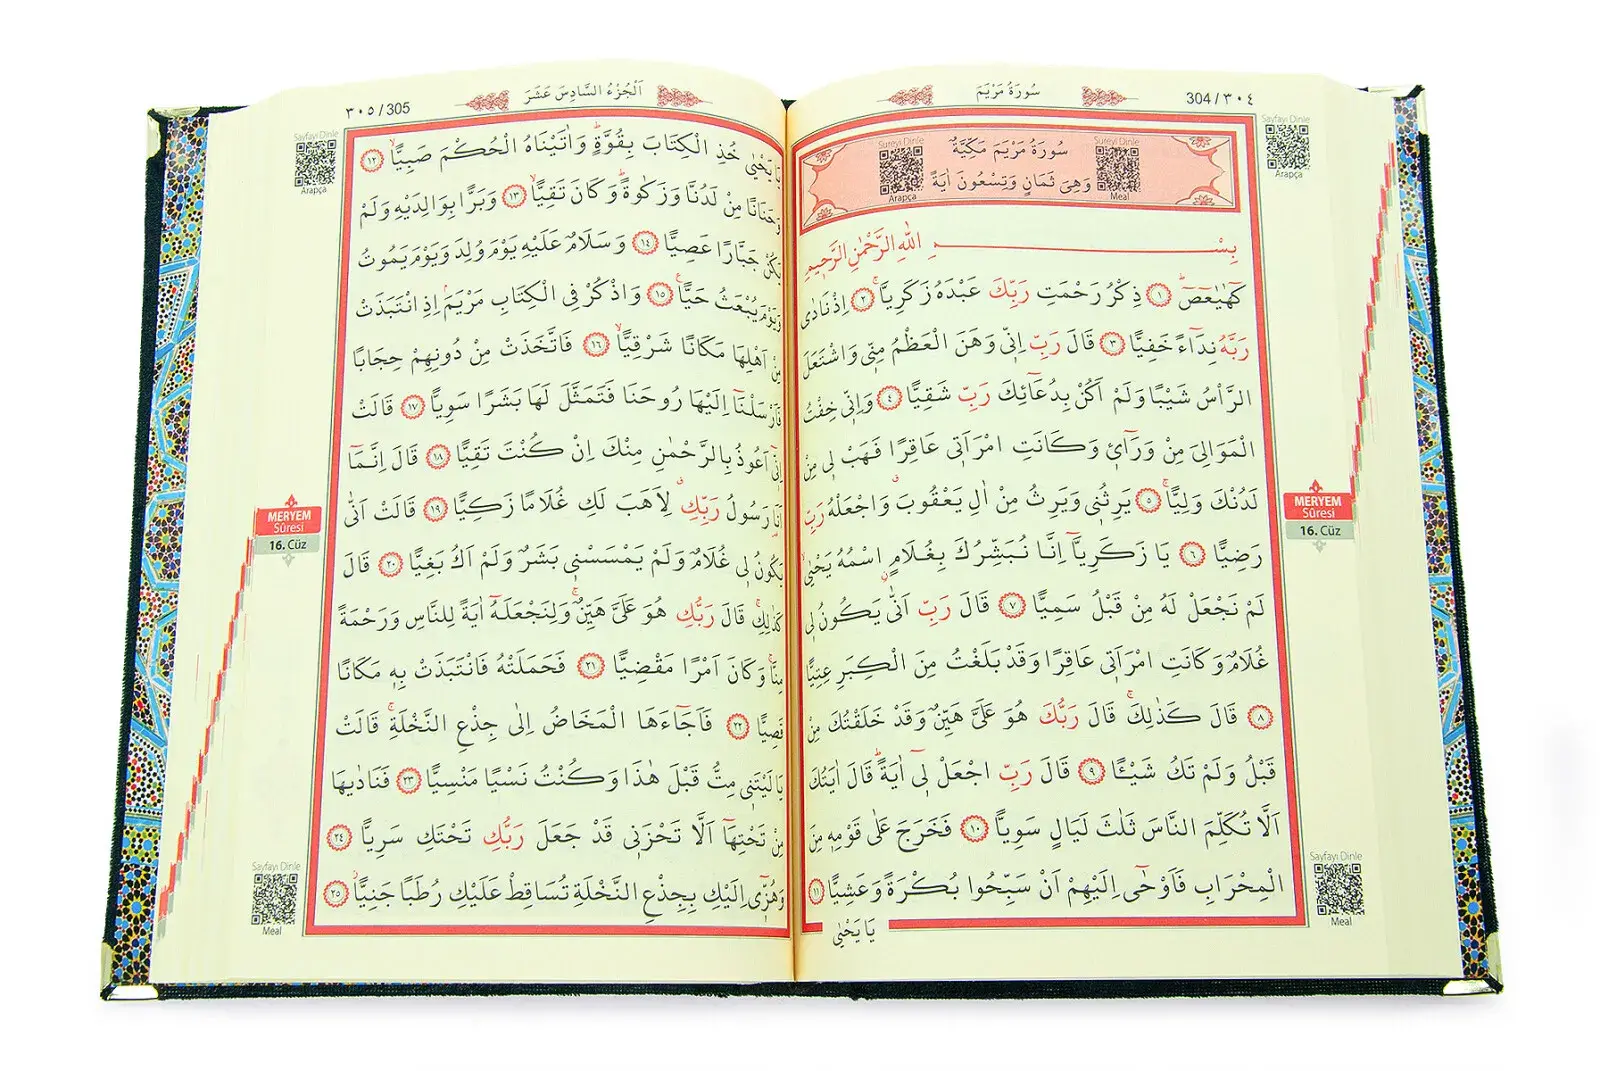 سُورَةُ مَرْيَمَ
304 / ٣٠٤
Sayfayı Dinle
Arapça
Sureyi Dinle
Arapça
سُورَةُ مَرْيَمَ مَكِّيَّةٌ
وَهِىَ ثَمَانٍ وَتِسْعُونَ اٰيَةً
Sureyi Dinle
Meal
بِسْــــمِ اللّٰهِ الرَّحْمٰنِ الرَّحٖيمِ
كٓهٰيٰعٓصٓۜ ﴿١﴾ ذِكْرُ رَحْمَتِ رَبِّكَ عَبْدَهُ زَكَرِيَّاۚ ﴿٢﴾ اِذْ نَادٰى
رَبَّهُ نِدَٓاءً خَفِيًّا ﴿٣﴾ قَالَ رَبِّ اِنّٖى وَهَنَ الْعَظْمُ مِنّٖى وَاشْتَعَلَ
الرَّأْسُ شَيْبًا وَلَمْ اَكُنْ بِدُعَٓائِكَ رَبِّ شَقِيًّا ﴿٤﴾ وَاِنّٖى خِفْتُ
الْمَوَالِىَ مِنْ وَرَٓائٖ وَكَانَتِ امْرَاَتٖى عَاقِرًا فَهَبْ لٖى مِنْ
لَدُنْكَ وَلِيًّاۙ ﴿٥﴾ يَرِثُنٖى وَيَرِثُ مِنْ اٰلِ يَعْقُوبَۗ وَاجْعَلْهُ رَبِّ
رَضِيًّا ﴿٦﴾ يَا زَكَرِيَّٓا اِنَّا نُبَشِّرُكَ بِغُلَامٍۨ اسْمُهُ يَحْيٰىۙ
لَمْ نَجْعَلْ لَهُ مِنْ قَبْلُ سَمِيًّا ﴿٧﴾ قَالَ رَبِّ اَنّٰى يَكُونُ لٖى
غُلَامٌ وَكَانَتِ امْرَاَتٖى عَاقِرًا وَقَدْ بَلَغْتُ مِنَ الْكِبَرِ عِتِيًّا
﴿٨﴾ قَالَ كَذٰلِكَۚ قَالَ رَبُّكَ هُوَ عَلَىَّ هَيِّنٌ وَقَدْ خَلَقْتُكَ مِنْ
قَبْلُ وَلَمْ تَكُ شَيْـًٔا ﴿٩﴾ قَالَ رَبِّ اجْعَلْ لٖٓى اٰيَةًۜ قَالَ اٰيَتُكَ
اَلَّا تُكَلِّمَ النَّاسَ ثَلٰثَ لَيَالٍ سَوِيًّا ﴿١٠﴾ فَخَرَجَ عَلٰى قَوْمِهٖ مِنَ
الْمِحْرَابِ فَاَوْحٰٓى اِلَيْهِمْ اَنْ سَبِّحُوا بُكْرَةً وَعَشِيًّا ﴿١١﴾
يَا يَحْيٰى
MERYEM
Sûresi
16. Cüz
Sayfayı Dinle
Meal
اَلْجُزْءُ السَّادِسَ عَشَرَ
٣٠٥ / 305
Sayfayı Dinle
Arapça
يَا يَحْيٰى خُذِ الْكِتَابَ بِقُوَّةٍۜ وَاٰتَيْنَاهُ الْحُكْمَ صَبِيًّاۙ ﴿١٢﴾
وَحَنَانًا مِنْ لَدُنَّا وَزَكٰوةًۜ وَكَانَ تَقِيًّاۙ ﴿١٣﴾ وَبَرًّا بِوَالِدَيْهِ وَلَمْ
يَكُنْ جَبَّارًا عَصِيًّا ﴿١٤﴾ وَسَلَامٌ عَلَيْهِ يَوْمَ وُلِدَ وَيَوْمَ يَمُوتُ
وَيَوْمَ يُبْعَثُ حَيًّاۚ ﴿١٥﴾ وَاذْكُرْ فِى الْكِتَابِ مَرْيَمَۢ اِذِ انْتَبَذَتْ
مِنْ اَهْلِهَا مَكَانًا شَرْقِيًّاۙ ﴿١٦﴾ فَاتَّخَذَتْ مِنْ دُونِهِمْ حِجَابًا
فَاَرْسَلْنَٓا اِلَيْهَا رُوحَنَا فَتَمَثَّلَ لَهَا بَشَرًا سَوِيًّا ﴿١٧﴾ قَالَتْ
اِنّٖٓى اَعُوذُ بِالرَّحْمٰنِ مِنْكَ اِنْ كُنْتَ تَقِيًّا ﴿١٨﴾ قَالَ اِنَّمَٓا
اَنَا رَسُولُ رَبِّكِۗ لِاَهَبَ لَكِ غُلَامًا زَكِيًّا ﴿١٩﴾ قَالَتْ اَنّٰى
يَكُونُ لٖى غُلَامٌ وَلَمْ يَمْسَسْنٖى بَشَرٌ وَلَمْ اَكُ بَغِيًّا ﴿٢٠﴾ قَالَ
كَذٰلِكِۚ قَالَ رَبُّكِ هُوَ عَلَىَّ هَيِّنٌۚ وَلِنَجْعَلَهُٓ اٰيَةً لِلنَّاسِ وَرَحْمَةً
مِنَّاۚ وَكَانَ اَمْرًا مَقْضِيًّا ﴿٢١﴾ فَحَمَلَتْهُ فَانْتَبَذَتْ بِهٖ مَكَانًا
قَصِيًّا ﴿٢٢﴾ فَاَجَٓاءَهَا الْمَخَاضُ اِلٰى جِذْعِ النَّخْلَةِۚ قَالَتْ
يَا لَيْتَنٖى مِتُّ قَبْلَ هٰذَا وَكُنْتُ نَسْيًا مَنْسِيًّا ﴿٢٣﴾ فَنَادٰيهَا
مِنْ تَحْتِهَٓا اَلَّا تَحْزَنٖى قَدْ جَعَلَ رَبُّكِ تَحْتَكِ سَرِيًّا ﴿٢٤﴾
وَهُزّٖٓى اِلَيْكِ بِجِذْعِ النَّخْلَةِ تُسَاقِطْ عَلَيْكِ رُطَبًا جَنِيًّاۘ ﴿٢٥﴾
MERYEM
Sûresi
16. Cüz
Sayfayı Dinle
Meal